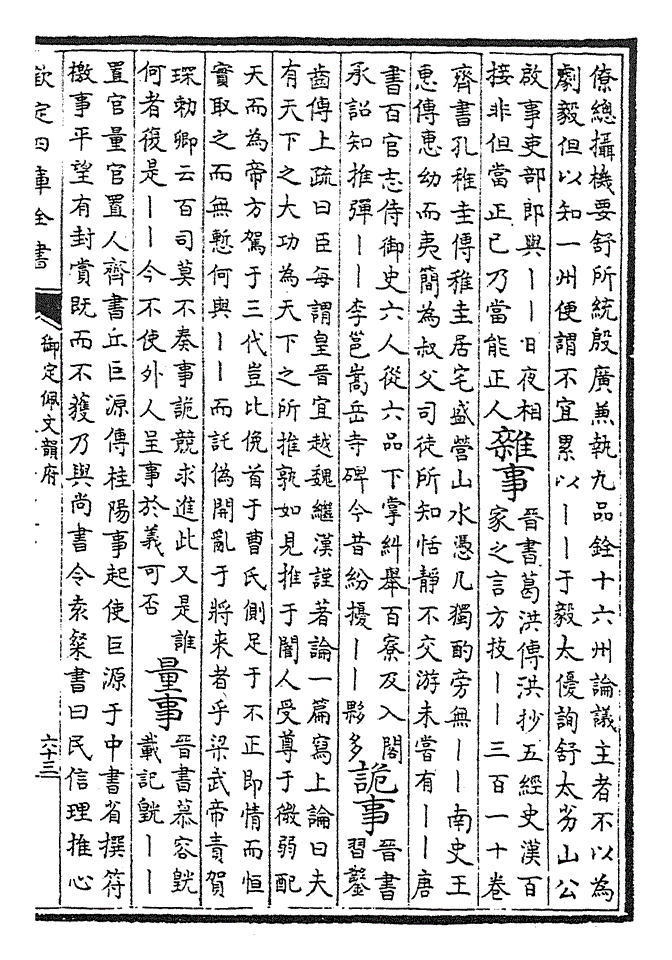 僚總攝機要舒所統殷廣兼執九品銓十六州論議主者不以為
劇毅但以知一州便謂不宜累以——于毅太優詢舒太劣山公
啟事吏部郎與——日夜相
接非但當正己乃當能正人
雜事
晉書葛洪傳洪抄五經史漢百
家之言方技——三百一十卷
齊書孔稚圭傳稚圭居宅盛營山水憑几獨酌旁無——南史王
惠傳惠幼而夷簡為叔父司徒所知恬靜不交游未嘗有——唐
書百官志侍御史六人從六品下掌糾舉百寮及入閤
承詔知推彈——李邕嵩岳寺碑今昔紛擾——夥多
詭事
晉書
習鑿
齒傳上疏曰臣每謂皇晉宜越魏繼漢謹著論一篇寫上論曰夫
有天下之大功為天下之所推孰如見推于闇人受尊于微弱配
天而為帝方駕于三代豈比俛首于曹氏側足于不正即情而恒
實取之而無慙何與——而託偽開亂于將来者乎梁武帝責賀
琛勅卿云百司莫不奏事詭競求進此又是誰
何者復是——今不使外人呈事於義可否
量事
晉書慕容皝
載記皝——
置官量官置人齊書丘巨源傳桂陽事起使巨源于中書省撰符
檄事平望有封賞既而不獲乃與尚書令袁粲書曰民信理推心
欽定四庫全書
御定佩文韻府
六十三